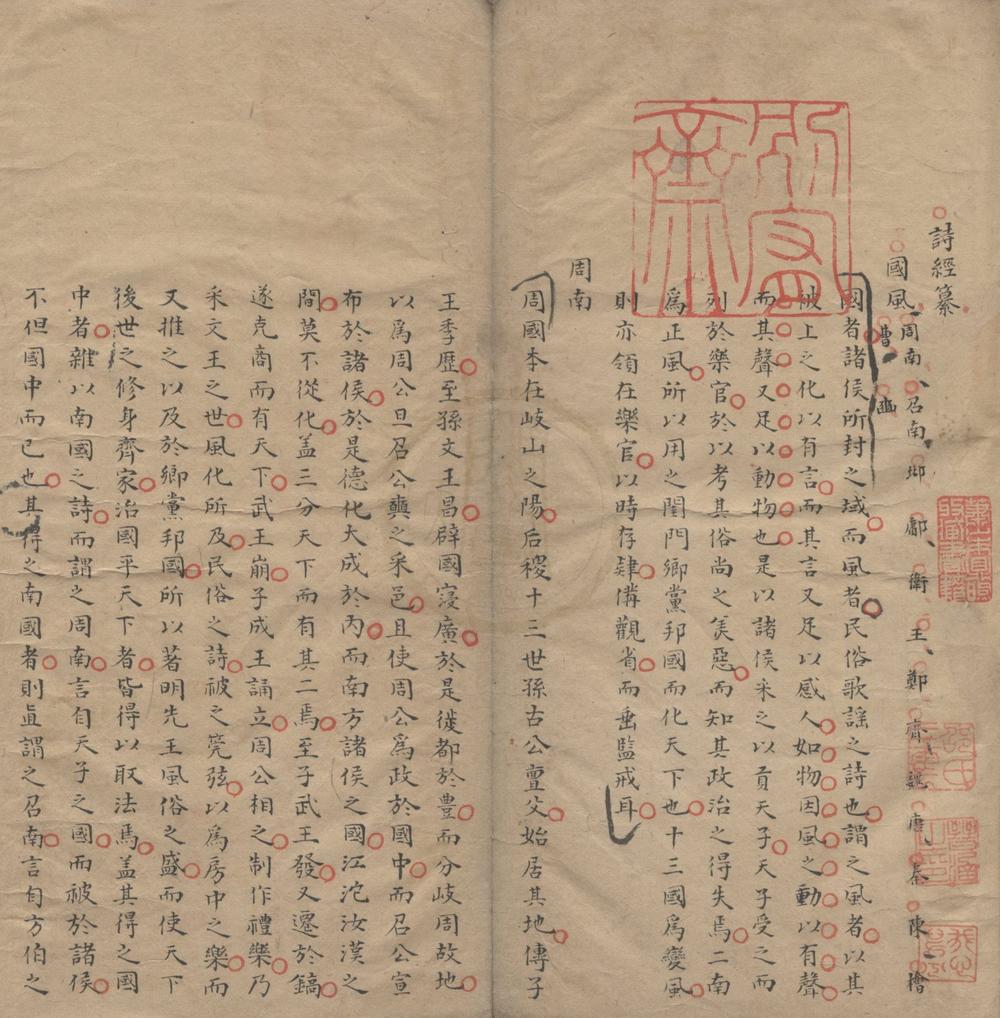 詩經纂
國風 周南 召南 邶 鄘 衛 王 鄭 齊 魏 唐 秦 陳 檜
曹 豳
國者諸侯所封之域而風者民俗歌謠之詩也謂之風者以其
被上之化以有言而其言又足以感人如物因風之動以有聲
而其聲又足以動物也是以諸侯采之以貢天子天子受之而
列於樂官於以考其俗尚之美惡而知其政治之得失焉二南
爲正風所以用之閨門鄉黨邦國而化天下也十三國爲變風
則亦領在樂官以時存肄備觀省而垂監戒耳
周南
周國本在岐山之陽后稷十三世孫古公亶父始居其地傳子
王季歷至孫文王昌辟國寖廣於是徙都於豊而分岐周故地
以爲周公旦召公奭之采邑且使周公爲政於國中而召公宣
布於諸侯於是德化大成於內而南方諸侯之國江沱汝漢之
間莫不從化盖三分天下而有其二焉至子武王發又遷於鎬
遂克商而有天下武王崩子成王誦立周公相之制作禮樂乃
采文王之世風化所及民俗之詩被之筦弦以爲房中之樂而
又推之以及於鄉黨邦國所以著明先王風俗之盛而使天下
後世之修身齊家治國平天下者皆得以取法焉盖其得之國
中者雜以南國之詩而謂之周南言自天子之國而被於諸侯
不但國中而已也其得之南國者則直謂之召南言自方伯之